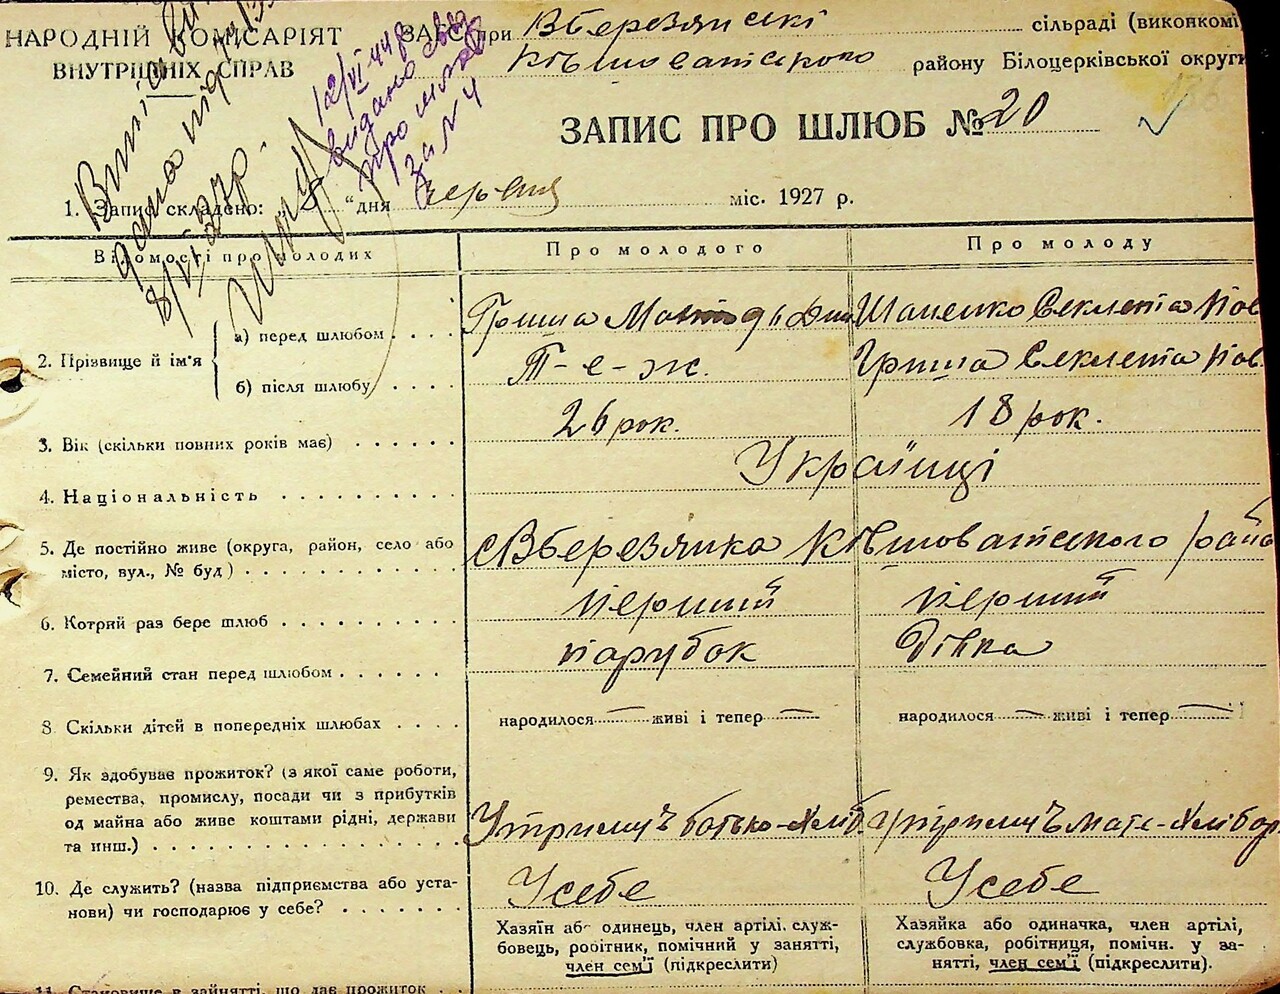 НАРОДНІЙ КОМІСАРІЯТ
ВНУТРІШНІХ СПРАВ
ЗАГС при ВБерезянскі сільраді (виконкомі
Ківшоватського району Білоцерківської округи
ЗАПИС ПРО ШЛЮБ № 20
12/VI 44 р
видано
про шлюб
за N 4
8/VI 27 р.
1. Запис складено: „ 8 “ дня червня міс. 1927 р.
Відомості про молодих
Про молодого
Про молоду
2. Прізвище й ім'я
а) перед шлюбом . . . . Гриша Шапенко Секлета Пов
б) після шлюбу . . . . Т-е-ж. Гриша Секлета Пов.
3. Вік (скільки повних років має) . . . . . . 26 рок. 18 рок.
4. Національність . . . . . . . . . . Українці
5. Де постійно живе (округа, район, село або
місто, вул., № буд) . . . . . . . . . . . с ВБерезянка Ківшоватського райо
6. Котрий раз бере шлюб . . . . . . . . . . перший перший
7. Семейний стан перед шлюбом . . . . . . парубок Дівка
8 Скільки дітей в попередніх шлюбах . . . . народилося — живі і тепер — народилося — живі і тепер —
9. Як здобуває прожиток? (з якої саме роботи,
ремества, промислу, посади чи з прибутків
од майна або живе коштами рідні, держави
та инш.) . . . . . . . . . . . . . . . . Утримує батько-хліб Утримує мате-хлібор
10. Де служить? (назва підприємства або уста-
нови) чи господарює у себе? . . . . . . . Усебе Усебе
Хазяїн або одинець, член артілі, служ-
бовець, робітник, помічний у занятті,
член сем'ї (підкреслити)
Хазяйка або одиначка, член артілі,
службовка, робітниця, помічн. у за-
нятті, член сем'ї (підкреслити).
11. Становище в зайнятті, що дає прожиток . .